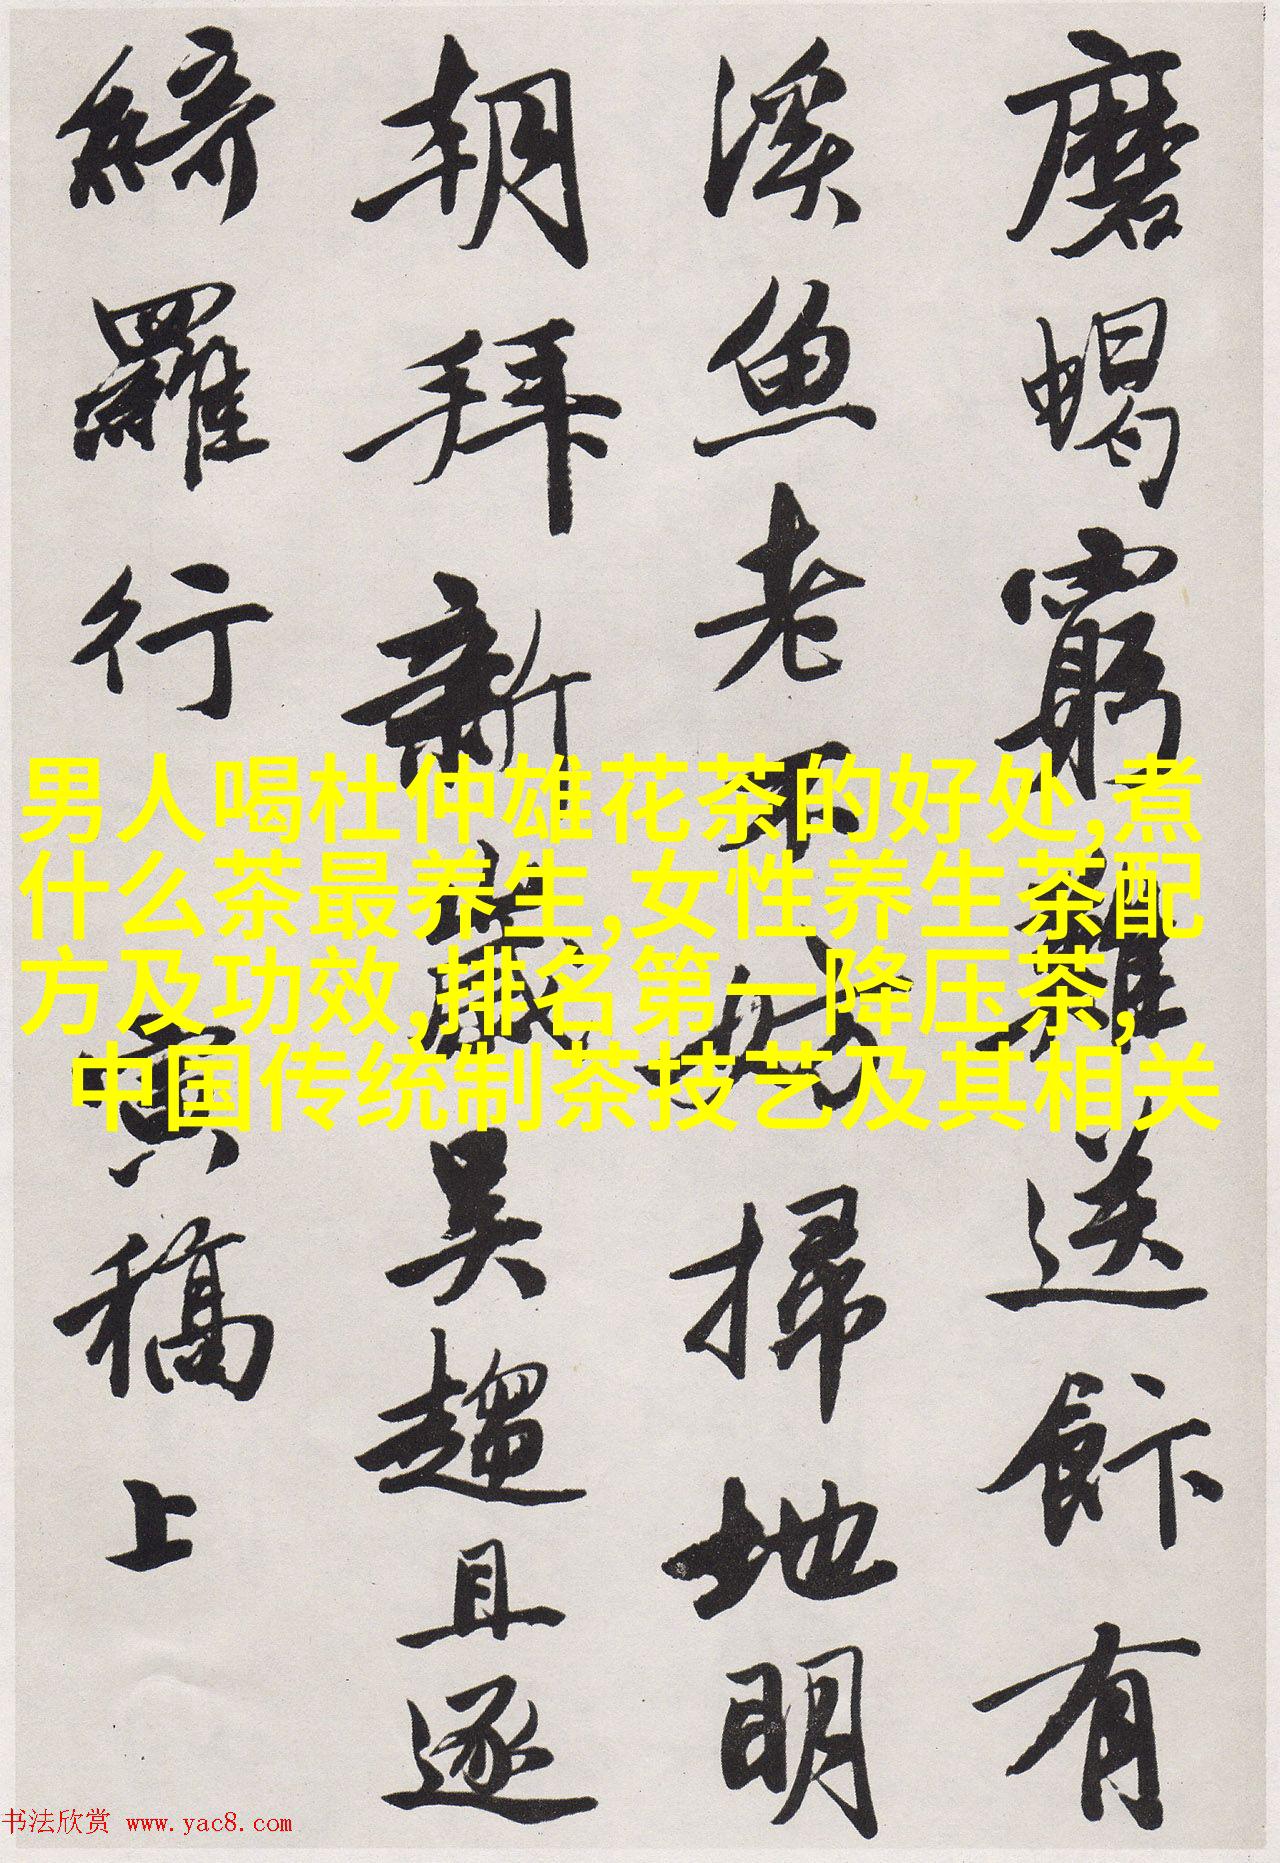 磨蝎窮難送飰有
溪魚老不妨掃地明
朝拜新歲吳趨且逐
綺羅行寅稿上
男人喝杜仲雄花茶的好处,煮
什么茶最养生,女性养生茶配
方及功效,排名第一降压茶,
中国传统制茶技艺及其相关
书法欣赏 www.yac8.com